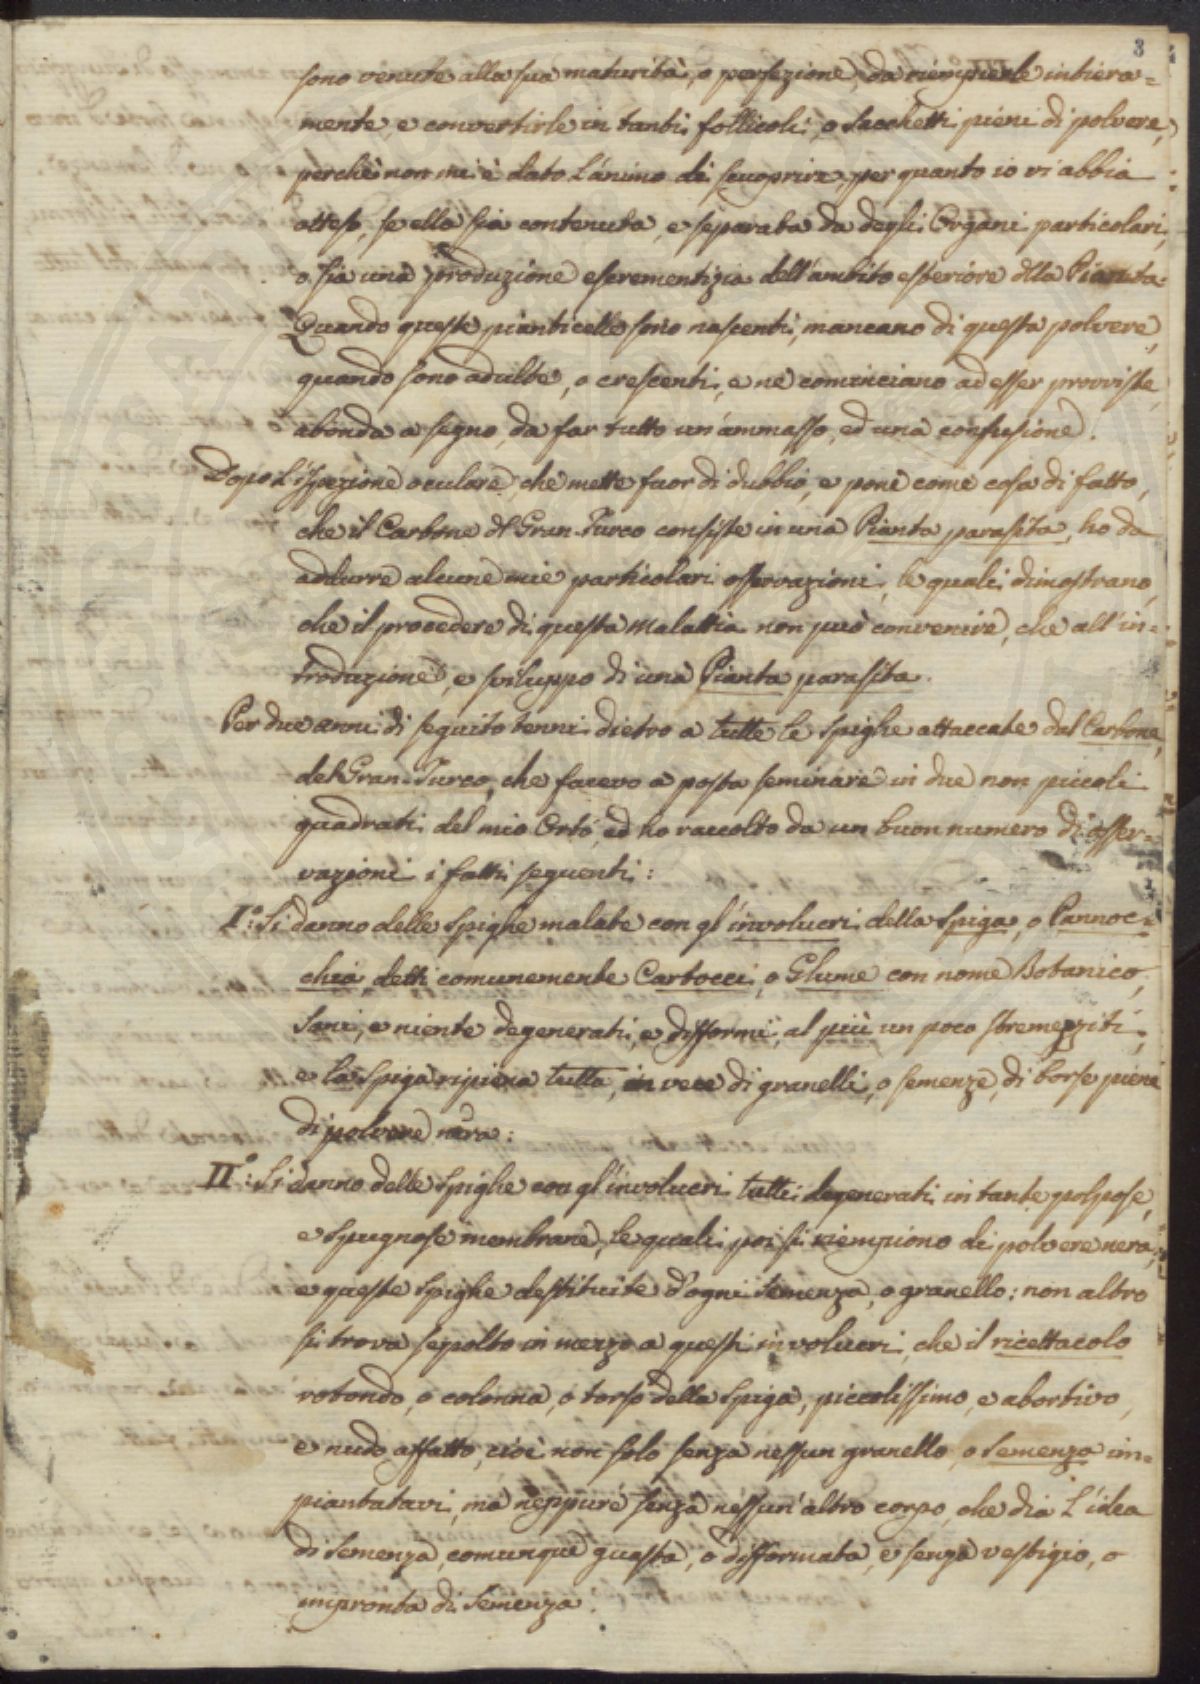 8
sono venute alla sua maturità, o perfezione, da riempierle intiera=
mente, e convertirle in tanti follicoli, o Sacchetti pieni di polvere,
perchè non mi è dato l'ánimo di scuoprire, per quanto io vi abbia
atteso, se ella sia contenuta, e separata da degli Organi particolari,
o sia una produzione escrementizia dell'ambito esteriore dlla Pianta.
Quando queste pianticelle sono nascenti, mancano di questa polvere,
quando sono adulte, o crescenti, e ne cominciano ad esser provviste,
abonda a segno, da far tutto un'ammasso, ed una confusione.
Dopo l'Ispezione oculare, che mette fuor di dubbio, e pone come cosa di fatto,
che il Carbone dl Gran-Turco consiste in una Pianta parasita, ho da
addurre alcune mie particolari osservazioni, le quali dimostrano,
che il procedere di questa Malattia non può convenire, che all'in=
troduzione, e sviluppo di una Pianta parasita.
Per due anni di seguito tenni dietro a tutte le Spighe attaccate dal Carbone,
del Gran-Turco, che facevo a posta seminare in due non piccoli
quadrati del mio Orto, ed ho raccolto da un buon numero di osser=
vazioni i fatti seguenti:
I.º: Si danno delle Spighe malate con gl'involucri della Spiga, o Pannoc=
chia, detti comunemente Cartocci, o Glume con nome Botanico,
Sani, e niente degenerati, e difformi, al più un poco stremenziti,
e la Spiga ripiena tutta, in vece di granelli, o semenze, di borse piene
di polvere nera:
II.º: Si danno delle Spighe con gl'involucri tutti degenerati in tante polpose,
e Spugnose membrane, le quali poi si riempiono di polvere nera,
e queste Spighe destituite d'ogni Semenza, o granello: non altro
si trova sepolto in mezzo a questi involucri, che il ricettacolo
rotondo, o colonna, o torso della Spiga, piccolissimo, e abortivo,
e nudo affatto, cioè non solo senza nessun granello, o Semenza im=
piantatavi, ma neppure senza nessun'altro corpo, che dia l'idea
di Semenza, comunque guasta, o difformata, e senza vestigio, o
impronta di Semenza.